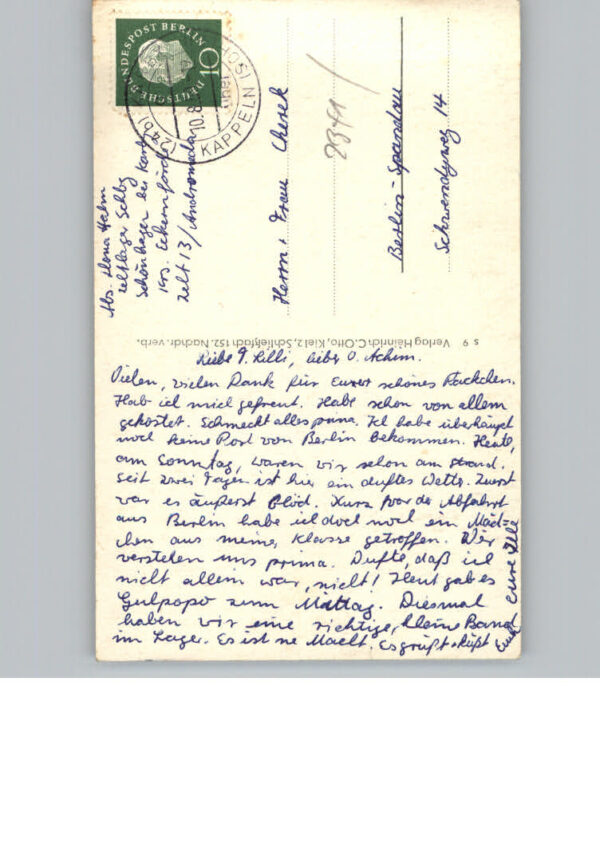 DEUTSCHE BUNDESPOST BERLIN
10
KAPPELN
(24b)
10.8.
Abs. Ilona Helm
Zeltlager Schlbg
Schönhagen bei Kappeln
Krs. Eckernförde
Zelt 13/Andromeda
Herrn + Frau Cherek
2341
Berlin-Spandau
Schwendyweg 14
s 9 Verlag Heinrich C. Otto, Kiel 2, Schließfach 152. Nachdr. verb.
Liebe T. Lilli, lieber O. Achim.
Vielen, vielen Dank für Euer schönes Päckchen.
Hab ich mich gefreut. Habe schon von allem
gekostet. Schmeckt alles prima. Ich habe überhaupt
noch keine Post von Berlin bekommen. Heute,
am Sonntag, waren wir schon am Strand.
Seit zwei Tagen ist hier ein duftes Wetter. Zuerst
war es äußerst blöd. Kurz vor der Abfahrt
aus Berlin habe ich doch noch ein Mäd-
chen aus meiner Klasse getroffen. Wir
verstehen uns prima. Dufte, daß ich
nicht allein war, nicht! Heut gab es
Gulpopo zum Mittag. Diesmal
haben wir eine richtige, kleine Band
im Lager. Es ist ne Macht. Es grüßt + küßt
Euch Eure Ille